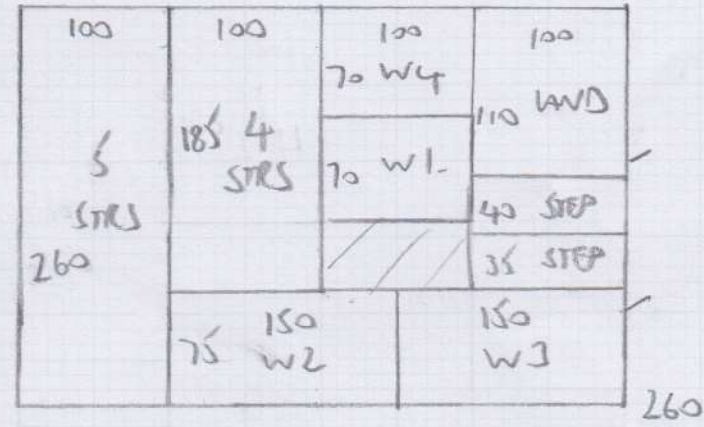 100
5
STRS
260
100
185 4
STRS
100
70 W4
70 W1
100
110 LAND
40 STEP
35 STEP
150
75 W2
150
W3
260